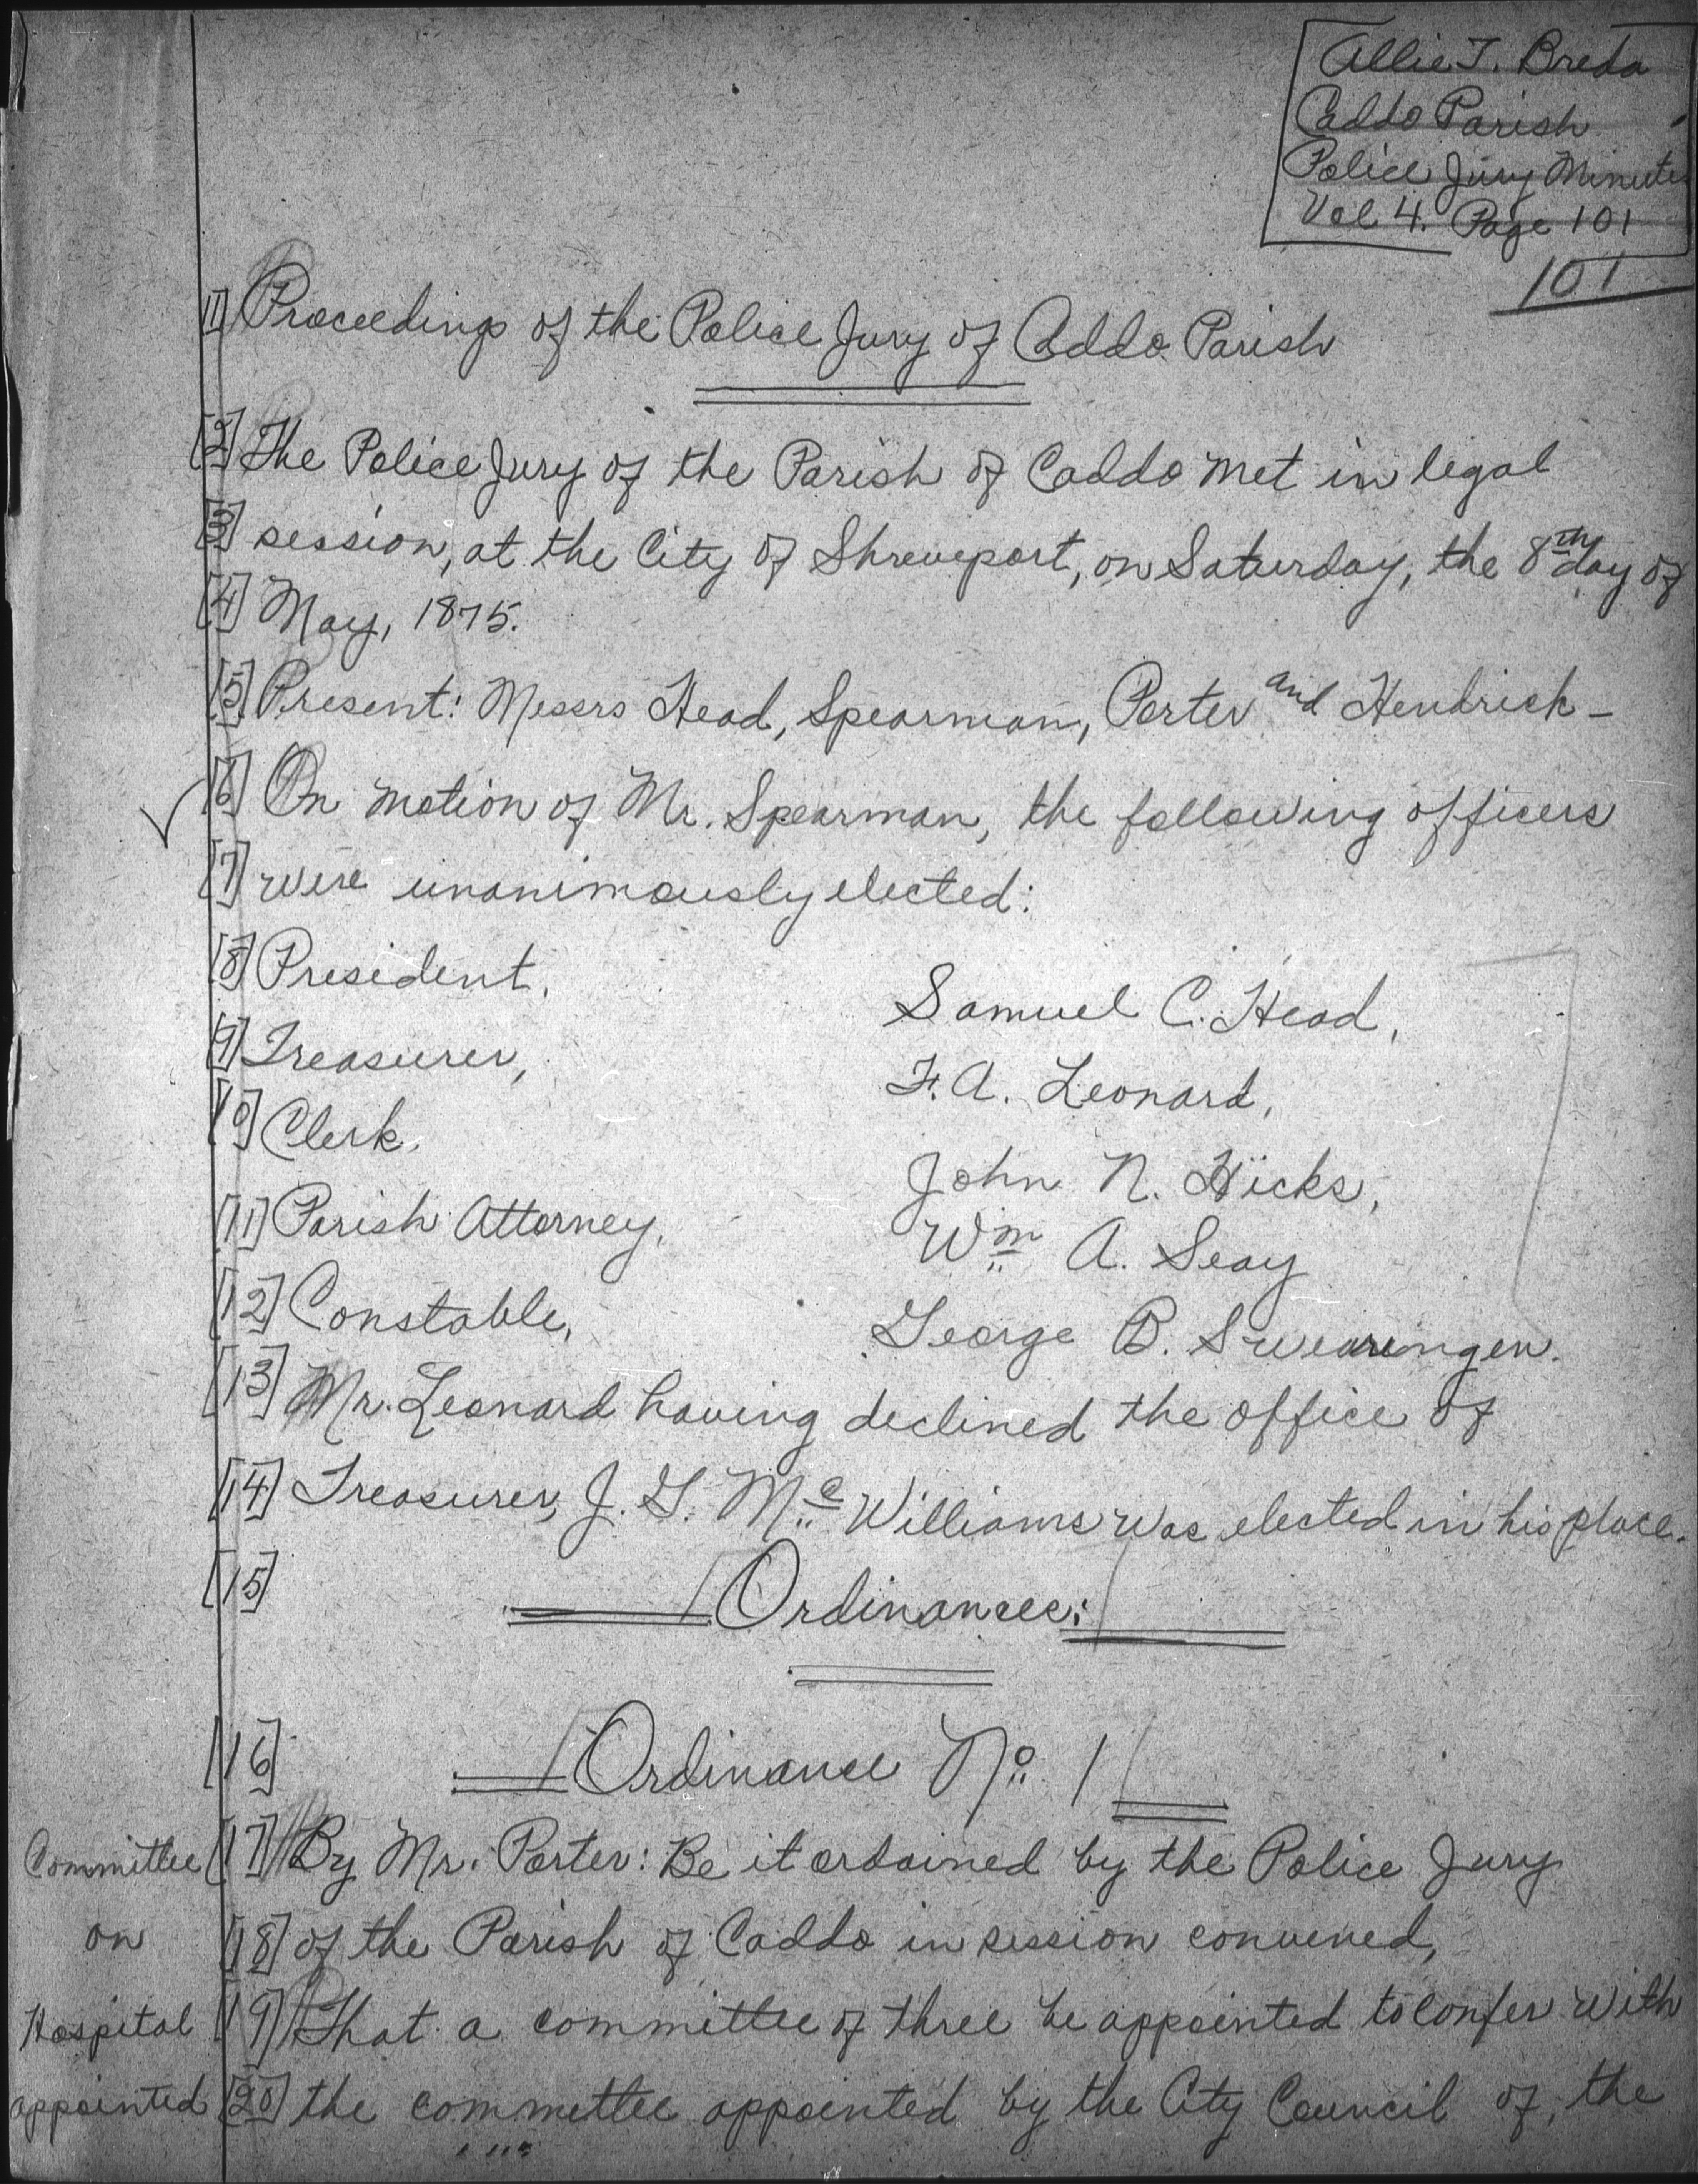 Allie T. Breda
Caddo Parish
Police Jury Minutes
Vol 4. Page 101
101
[1] Proceedings of the Police Jury of Caddo Parish
[2] The Police Jury of the Parish of Caddo met in legal
[3] session, at the City of Shreveport, on Saturday, the 8th day of
[4] May, 1875.
[5] Present: Messrs Head, Spearman, Porter and Hendrick -
[6] On motion of Mr. Spearman, the following officers
[7] were unanimously elected:
[8] President, Samuel C. Head,
[9] Treasurer, F. A. Leonard,
[10] Clerk, John N. Hicks,
[11] Parish Attorney, Wm A. Seay
[12] Constable, George B. Swearingen.
[13] Mr. Leonard having declined the office of
[14] Treasurer, J. G. McWilliams was elected in his place.
[15] Ordinances:
[16] Ordinance No. 1
Committee [17] By Mr. Porter: Be it ordained by the Police Jury
on [18] of the Parish of Caddo in session convened,
Hospital [19] That a committee of three be appointed to confer with
appointed [20] the committee appointed by the City Council of, the